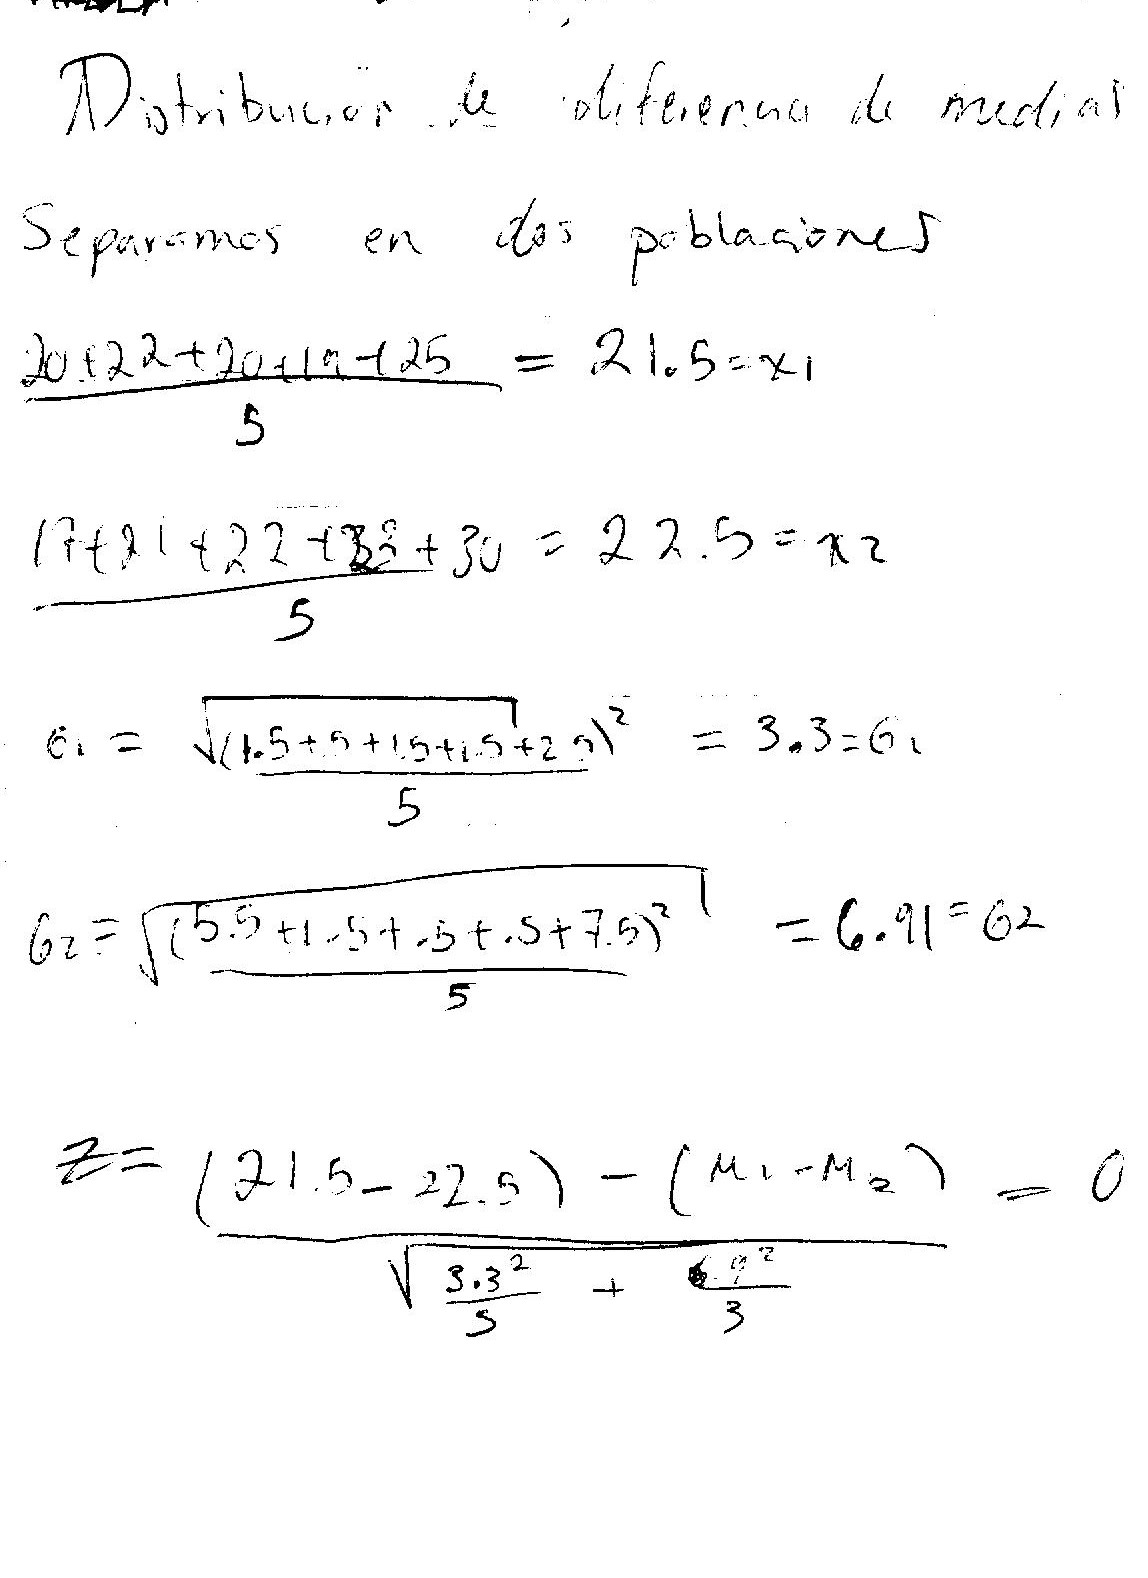 Distribución de diferencia de medias
Separamos en dos poblaciones
20+22+20+19+25 = 21.5 = x1
5
17+21+22+ +30 = 22.5 = x2
5
σ1 = √(1.5+.5+1.5+1.5+2.5)² = 3.3 = σ1
5
σ2 = √(5.5+1.5+.5+.5+7.5)² = 6.91 = σ2
5
z = (21.5 - 22.5) - (M1 - M2) = 0
√ 3.3² + 6.9²
5 3